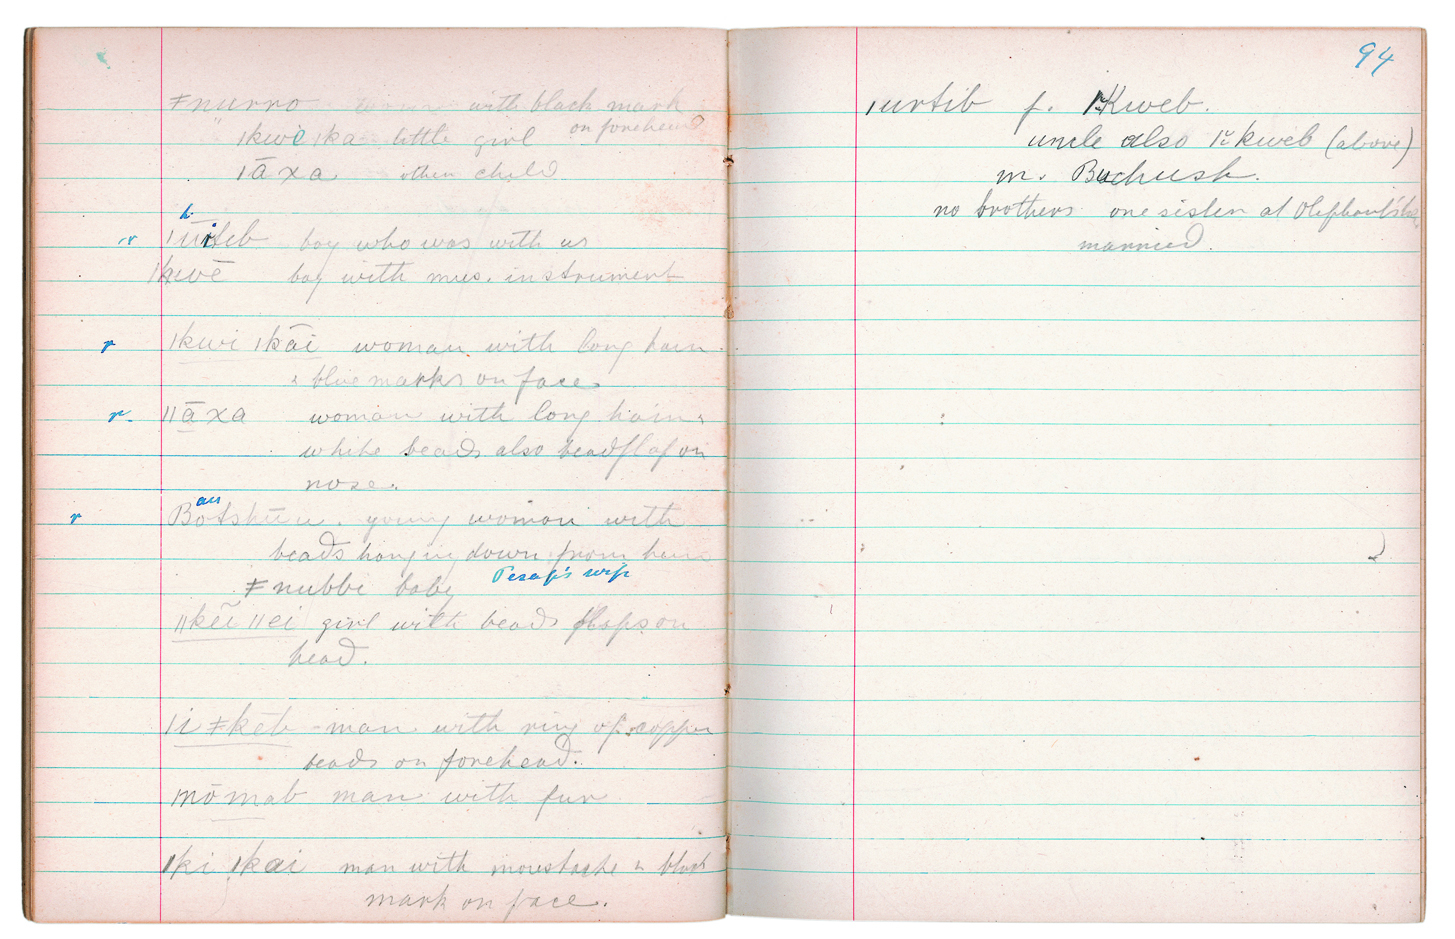 ǂnurro woman with black mark
on forehead
ǀkwe ǀka little girl
ǀāxa other child
r ǀūiteb boy who was with us
ǀkwē boy with mus. instrument
r ǀkwi ǀkāi woman with long hair
& blue marks on face.
r. ǁāxa woman with long hair,
white beads also bead flap on
nose.
au
r Botshūu. young woman with
beads hanging down from hair
ǂnubbe baby Pesap's wife
ǁkeī ǁei girl with beads flaps on
head.
ǀi ǂkēb - man with ring of copper
beads on forehead.
ǀnōmab man with fur
ǀki ǀkai man with moustache & black
mark on face.
94
ǀurtib f. ǀKweb.
uncle also ǀkweb (above)
m. Buchush.
no brothers one sister at Oliphant's
married.